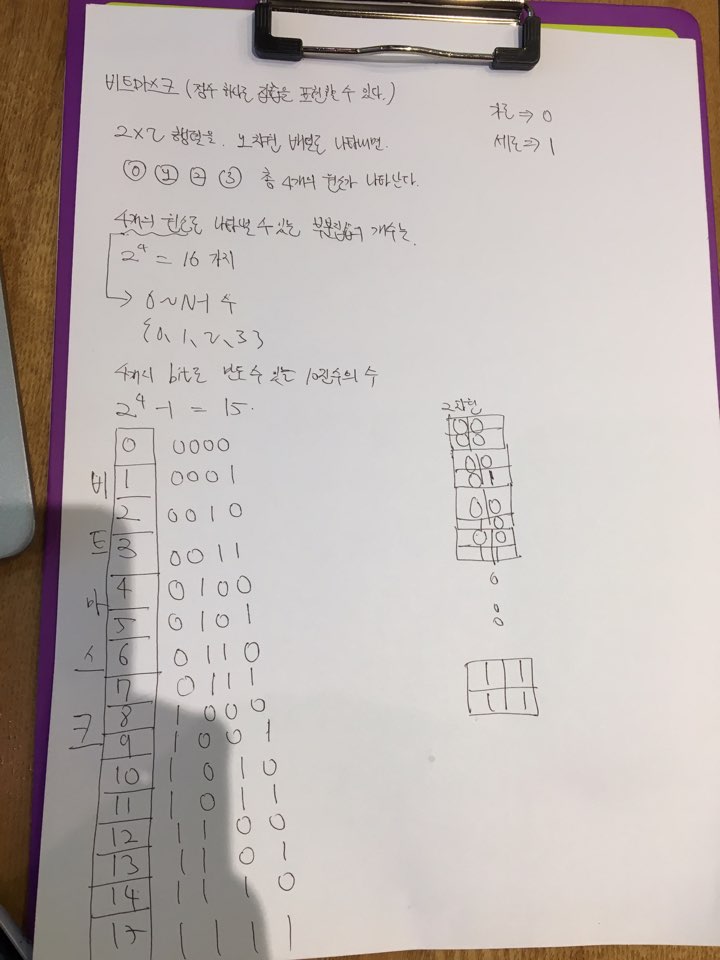 비트마스크 (정수 하나로 집합을 표현할 수 있다.)
가로 ⇒ 0
세로 ⇒ 1
2×2 행렬을. 노차원 배열로 나타내면.
0 1 2 3 총 4개의 원소가 나타난다.
4개의 원소로 나타낼 수 있는 부분집합의 개수는.
2^4 = 16 가지
→ 0~N-1 수
{0, 1, 2, 3}
4개의 bit로 만들 수 있는 10진수의 수
2^4 -1 = 15.
비트마스크
0 0000
1 0001
2 0010
3 0011
4 0100
5 0101
6 0110
7 0111
8 1000
9 1001
10 1010
11 1011
12 1100
13 1101
14 1110
15 1111
2차원
00
00
00
01
00
10
00
11
11
11